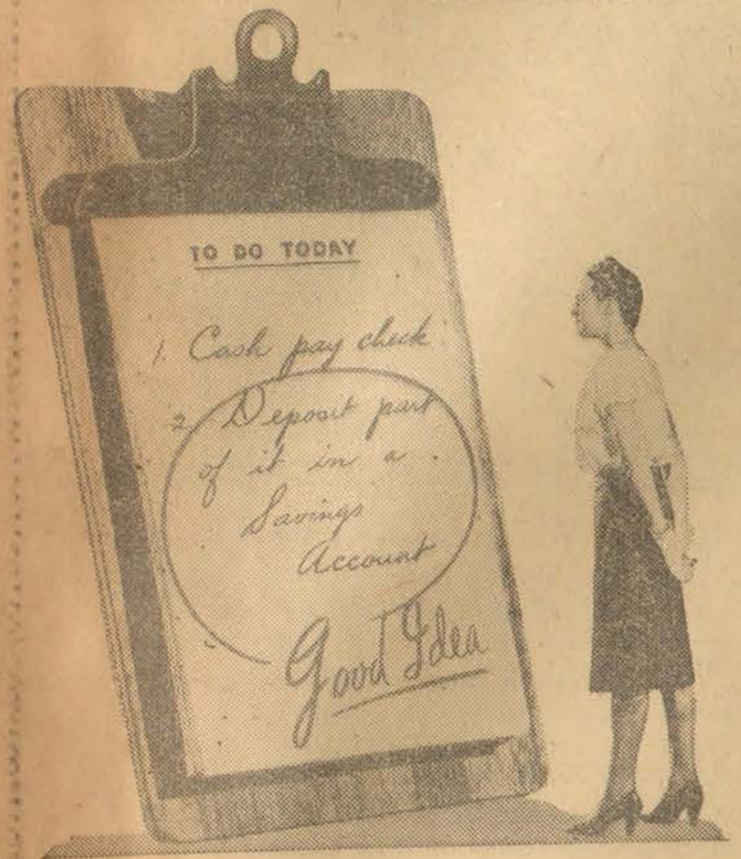 TO DO TODAY
1. Cash pay check
2 Deposit part
of it in a
Savings
Account
Good Idea